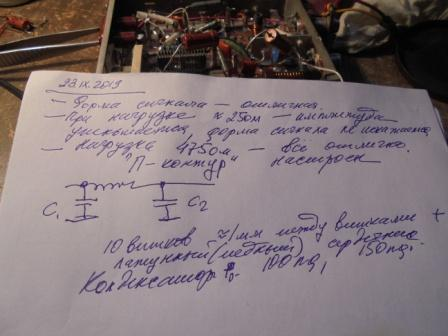 23.IX.2019
— Форма сигнала — отличная.
— При нагрузке ≈ 25 Ом — амплитуда
уменьшается, форма сигнала не искажается
— Нагрузка 475 Ом — всё отлично.
"П-контур" настроен
C1 C2
10 витков ≈ 1мм между витками
латунный (медный) сердечник
Конденсатор 100пф, 150пф.